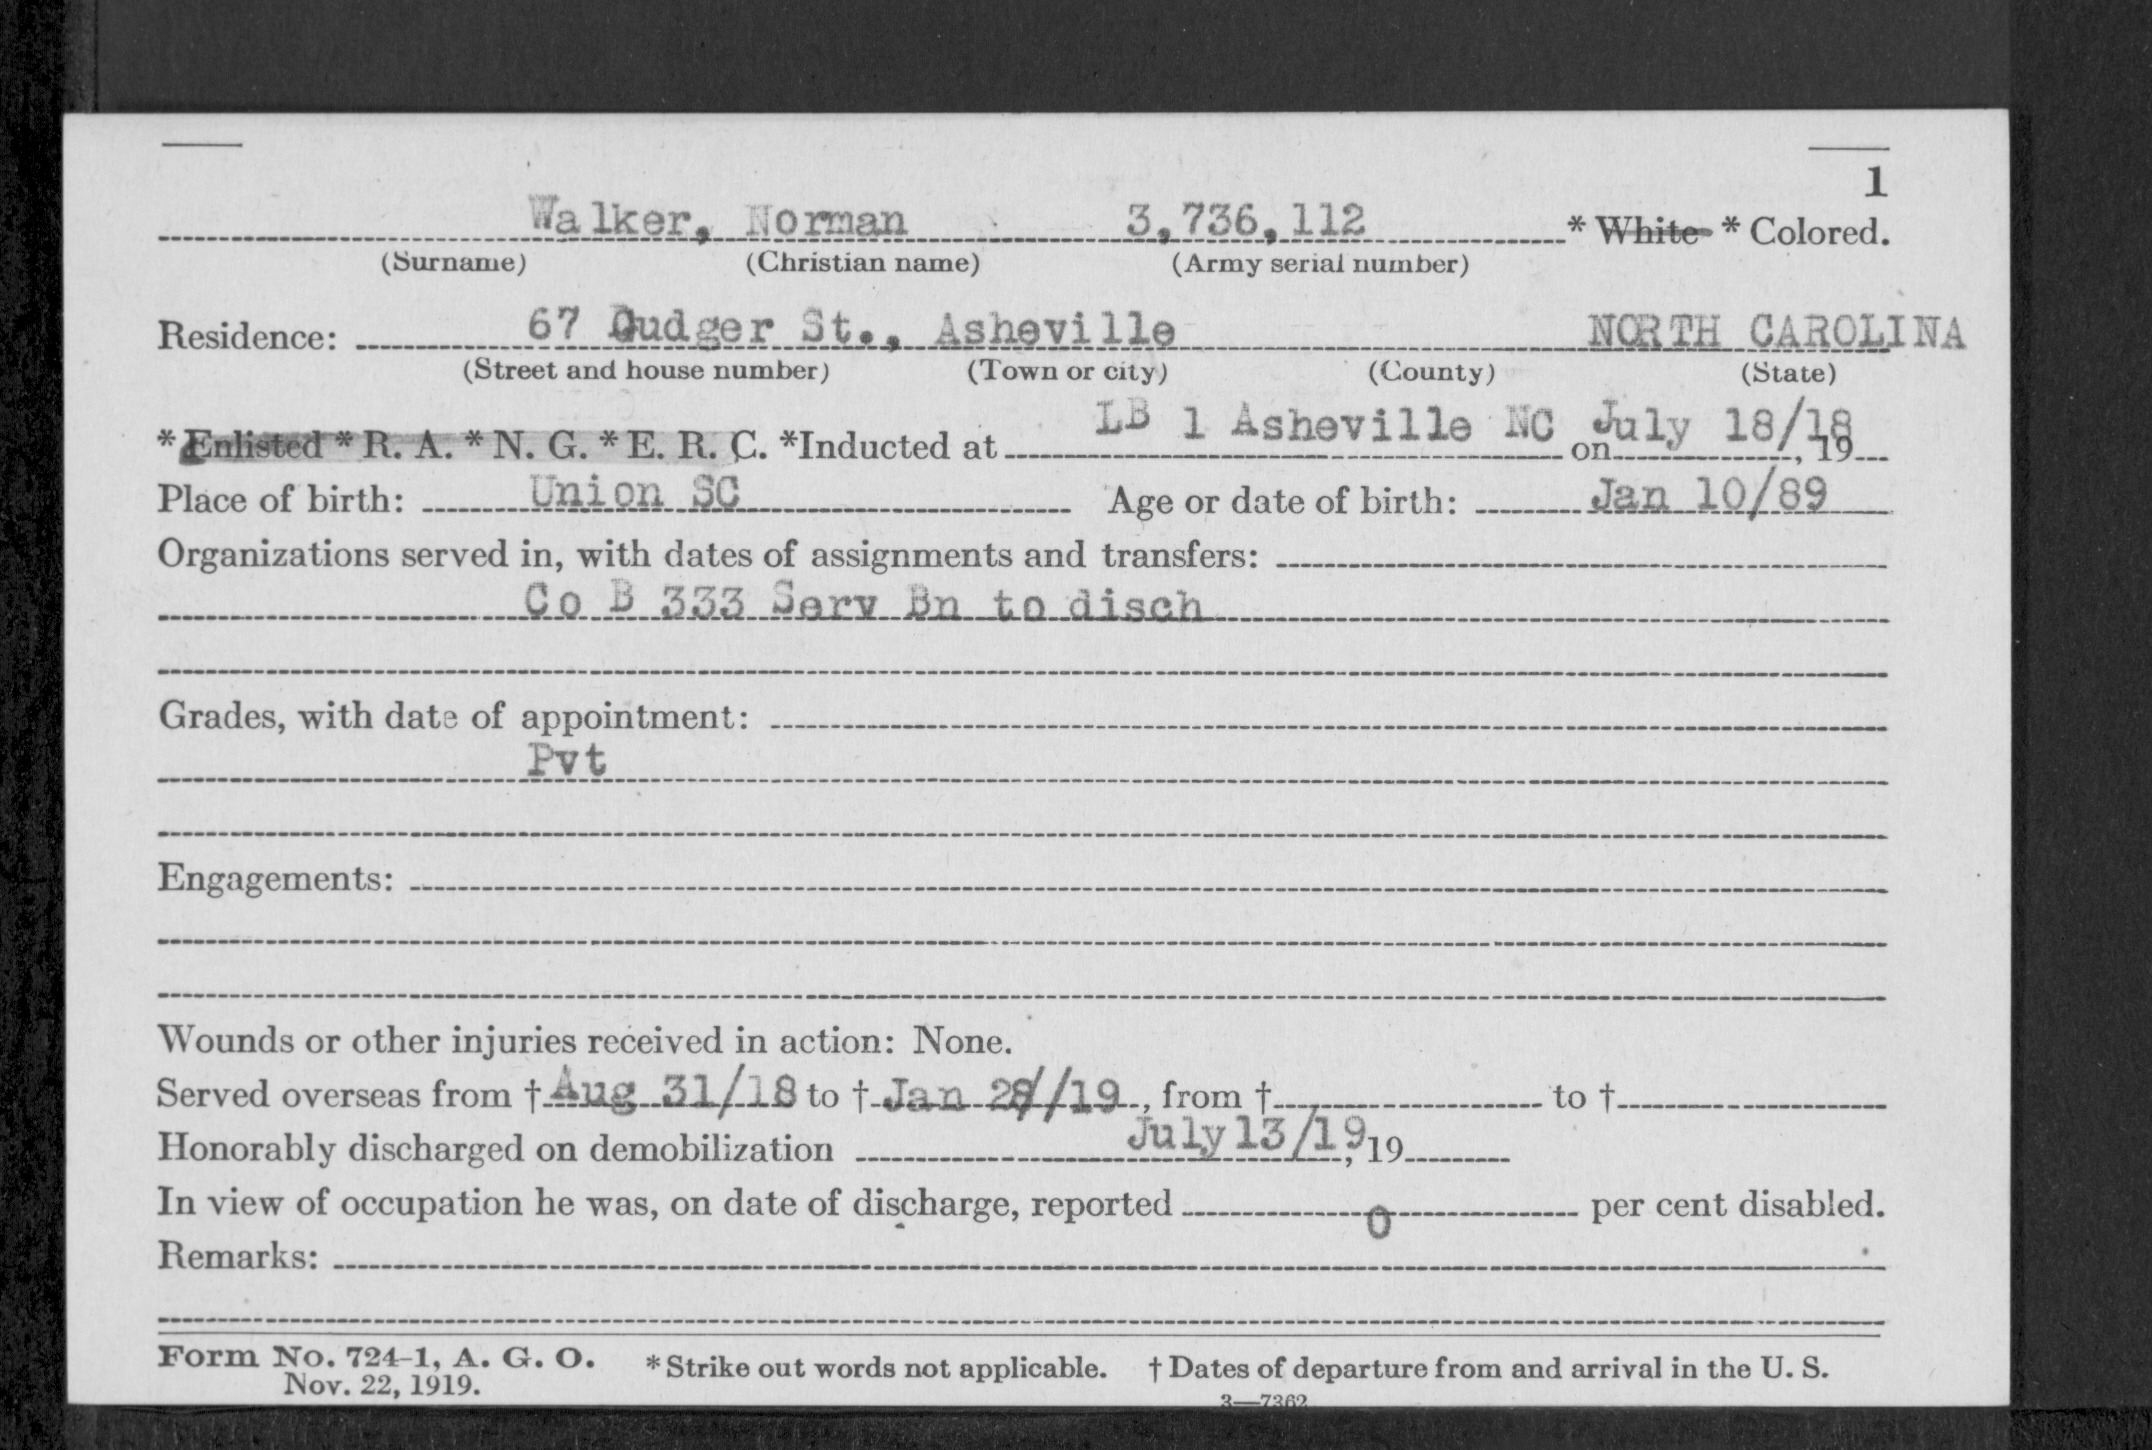 1
Walker, Norman 3,736,112 * White * Colored.
(Surname) (Christian name) (Army serial number)
Residence: 67 Gudger St., Asheville NORTH CAROLINA
(Street and house number) (Town or city) (County) (State)
* Enlisted * R. A. * N. G. * E. R. C. *Inducted at LB 1 Asheville NC on July 18/18, 19
Place of birth: Union SC Age or date of birth: Jan 10/89
Organizations served in, with dates of assignments and transfers:
Co B 333 Serv Bn to disch
Grades, with date of appointment:
Pvt
Engagements:
Wounds or other injuries received in action: None.
Served overseas from † Aug 31/18 to † Jan /19, from † to †
Honorably discharged on demobilization July 13/19, 19
In view of occupation he was, on date of discharge, reported 0 per cent disabled.
Remarks:
Form No. 724-1, A. G. O. * Strike out words not applicable. † Dates of departure from and arrival in the U. S.
Nov. 22, 1919.
3—7362